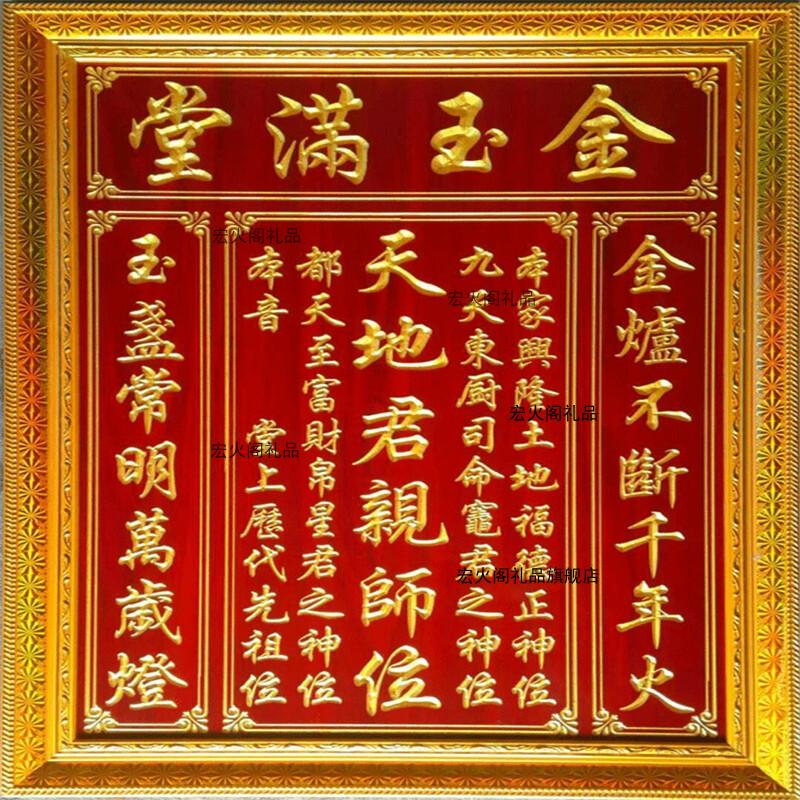 金玉滿堂
金爐不斷千年火
本家興隆土地福德正神位
九天東厨司命竈君之神位
天地君親師位
都天至富財帛星君之神位
本音 堂上歷代先祖位
玉盞常明萬歲燈
宏火阁礼品
宏火阁礼品
宏火阁礼品
宏火阁礼品
宏火阁礼品旗舰店